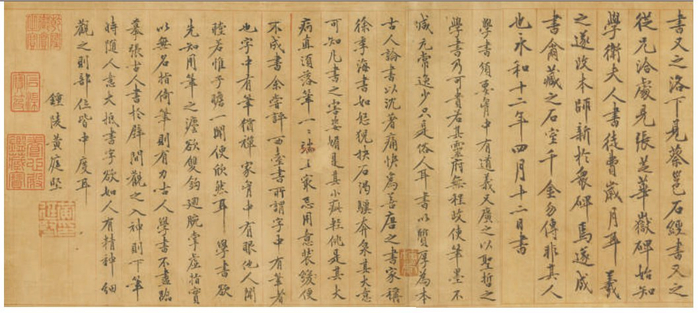 書又之洛下見蔡邕石經書又之
從兄洽處見張芝華嶽碑始知
學衛夫人書徒費歲月耳羲
之遂改本師新於衆碑焉遂成
書翁藏之石室千金勿傳非其人
也永和十二年四月十二日書
學書須要胷中有道義又廣之以聖哲之
學書乃可貴若其靈府無程政使筆墨不
減元常逸少只是俗人耳書以質厚為本
古人論書以沉著痛快為善唐之書家稱
徐季海書如怒猊抉石渴驥奔泉其大意
可知凡書之字姿媚是其小疵輕佻是其大
病直須落筆一一端正最忌用意裝綴便
不成書余嘗評百臺書所謂字中有筆者
也字中有筆猶禪家句中有眼他人聞
瞠若惟予瞻一聞便欣然耳 學書欲
先知用筆之法欲雙鉤迴腕掌虛指實
以無名指倚筆則有力古人學書不盡臨
摹張古人書於壁間觀之入神則下筆
時隨人意大抵書字欲如人有精神細
觀之則部位皆中度耳
鍾陵黃庭堅